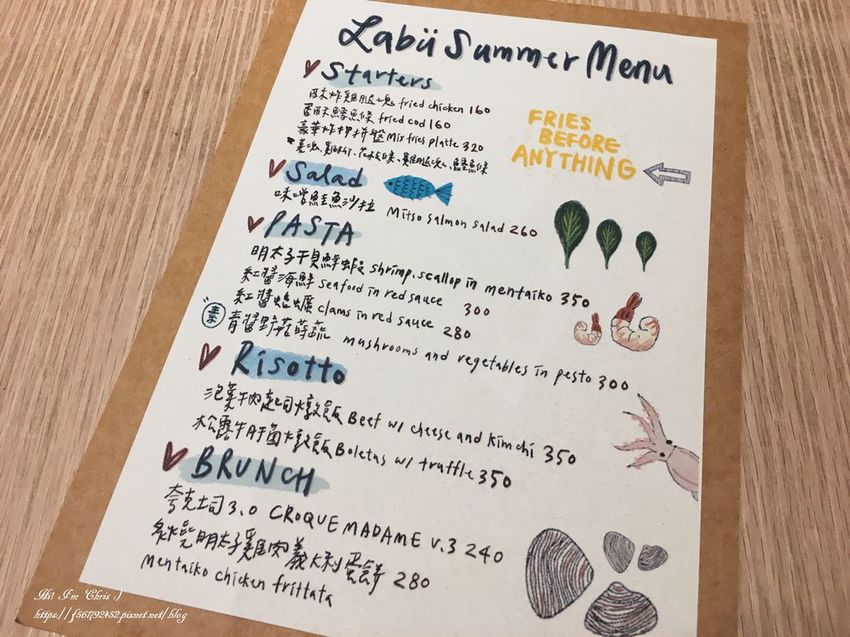 Labii Summer Menu
Starters
酥炸雞腿塊 fried chicken 160
香酥鱈魚條 fried cod 160
豪華炸物拼盤 Mix fries platte 320
FRIES
BEFORE
ANYTHING
Salad
味噌鮭魚沙拉 Mitso salmon salad 260
PASTA
明太子干貝鮮蝦 shrimp.scallop in mentaiko 350
紅醬海鮮 seafood in red sauce 300
紅醬蛤蠣 clams in red sauce 280
素 青醬野菇蒔蔬 mushrooms and vegetables in pesto 300
Risotto
泡菜牛肉起司燉飯 Beef w/ cheese and kimchi 350
松露牛肝菌燉飯 Boletus w/ truffle 350
BRUNCH
夸克土司3.0 CROQUE MADAME V.3 240
明太子雞肉義大利蛋餅 280
mentaiko chicken frittata
Hi! I'm Chris :)
https://f561792452.pixnet.net/blog